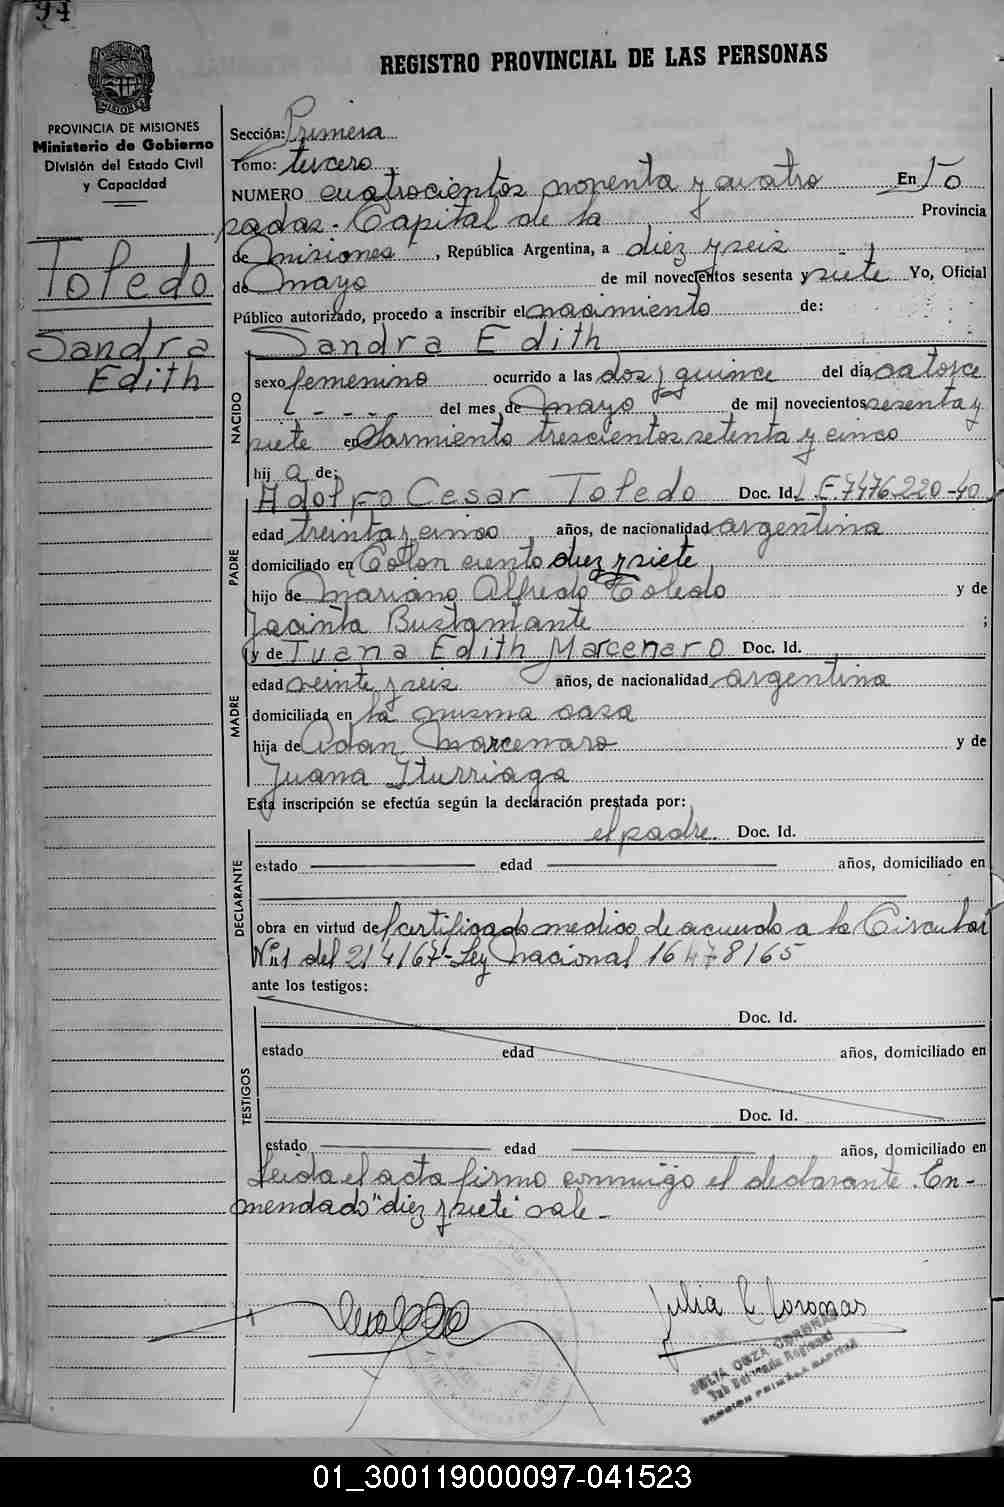 97
REGISTRO PROVINCIAL DE LAS PERSONAS
MISIONES
PROVINCIA DE MISIONES
Ministerio de Gobierno
División del Estado Civil
y Capacidad
Toledo
Sandra
Edith
Sección: Primera
Tomo: tercero
NUMERO cuatrocientos noventa y cuatro En Po
sadas. Capital de la Provincia
de Misiones, República Argentina, a diez y seis
de mayo de mil novecientos sesenta y siete Yo, Oficial
Público autorizado, procedo a inscribir el nacimiento de:
Sandra Edith
NACIDO
sexo femenino ocurrido a las dos y quince del día catorce
del mes de Mayo de mil novecientos sesenta y
siete en Sarmiento trescientos setenta y cinco
hij a de:
Adolfo Cesar Toledo Doc. Id. L.E. 7476.220-40
PADRE
edad treinta y cinco años, de nacionalidad argentina
domiciliado en Colon ciento diez y siete
hijo de Mariano Alfredo Toledo y de
Jacinta Bustamante ;
y de Juana Edith Marcenaro Doc. Id.
MADRE
edad veinte y seis años, de nacionalidad argentina
domiciliada en la misma casa
hija de Adan Marcenaro y de
Juana Iturriaga
Esta inscripción se efectúa según la declaración prestada por:
el padre. Doc. Id.
DECLARANTE
estado edad años, domiciliado en
obra en virtud de certificado medico de acuerdo a la Circular
Nº 1 del 21/4/67- Ley Nacional 16478/65
ante los testigos:
TESTIGOS
Doc. Id.
estado edad años, domiciliado en
Doc. Id.
estado edad años, domiciliado en
Leida el acta firma conmigo el declarante. En-
mendado "diez y siete" vale-
Julia C. Coronas
JULIA CORONAS
Sub Delegada Regional
SECCION PRIMERA CAPITAL
01_300119000097-041523